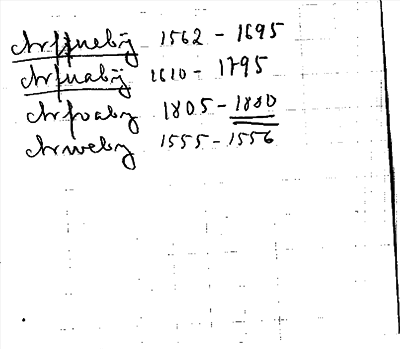 Arffuebÿ 1562 - 1695
Arfuabÿ 1610 - 1795
Arfvaby 1805 - 1880
Arweby 1555 - 1556